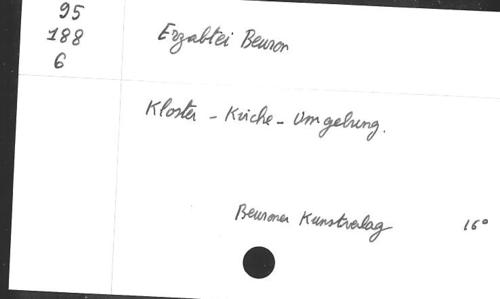 95
188
6
Erzabtei Beuron
Kloster - Kirche - Umgebung.
Beuroner Kunstverlag 16°